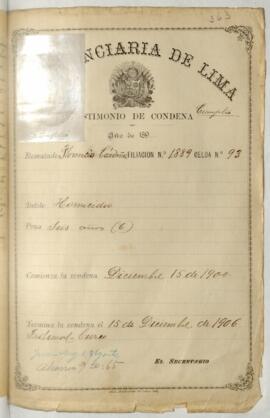 363
NCIARIA DE LIMA
TIMONIO DE CONDENA
Cumplió
Año de 189
Rematado Florencio FILIACION N.º 1889 CELDA N.º 93
Delito Homicidio
Pena Seis años (6)
Comienza la condena Diciembre 15 de 1900
Termina la condena el 15 de Diciembre de 1906
Tribunal Cuzco
EL SECRETARIO